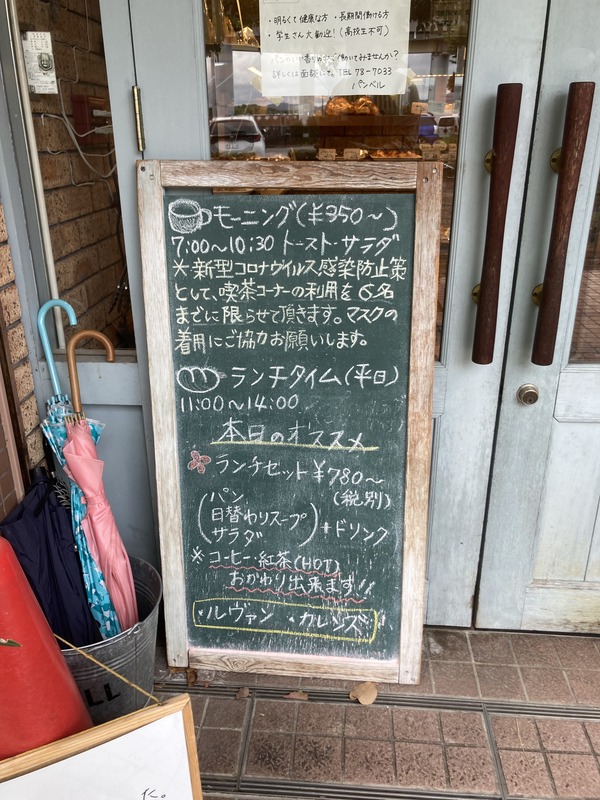 ・明るくて健康な方 ・長期間働ける方
・学生さん大歓迎!(高校生不可)
詳しくは面談にて。TEL 78-7033
パンベル
モーニング(¥350〜)
7:00〜10:30 トースト・サラダ
*新型コロナウイルス感染防止策
として、喫茶コーナーの利用を6名
までに限らせて頂きます。マスクの
着用にご協力お願いします。
ランチタイム(平日)
11:00〜14:00
本日のオススメ
ランチセット¥780〜
(税別)
(パン
日替わりスープ
サラダ)+ドリンク
*コーヒー・紅茶(HOT)
おかわり出来ます!!
*ルヴァン *カレンズ
LL